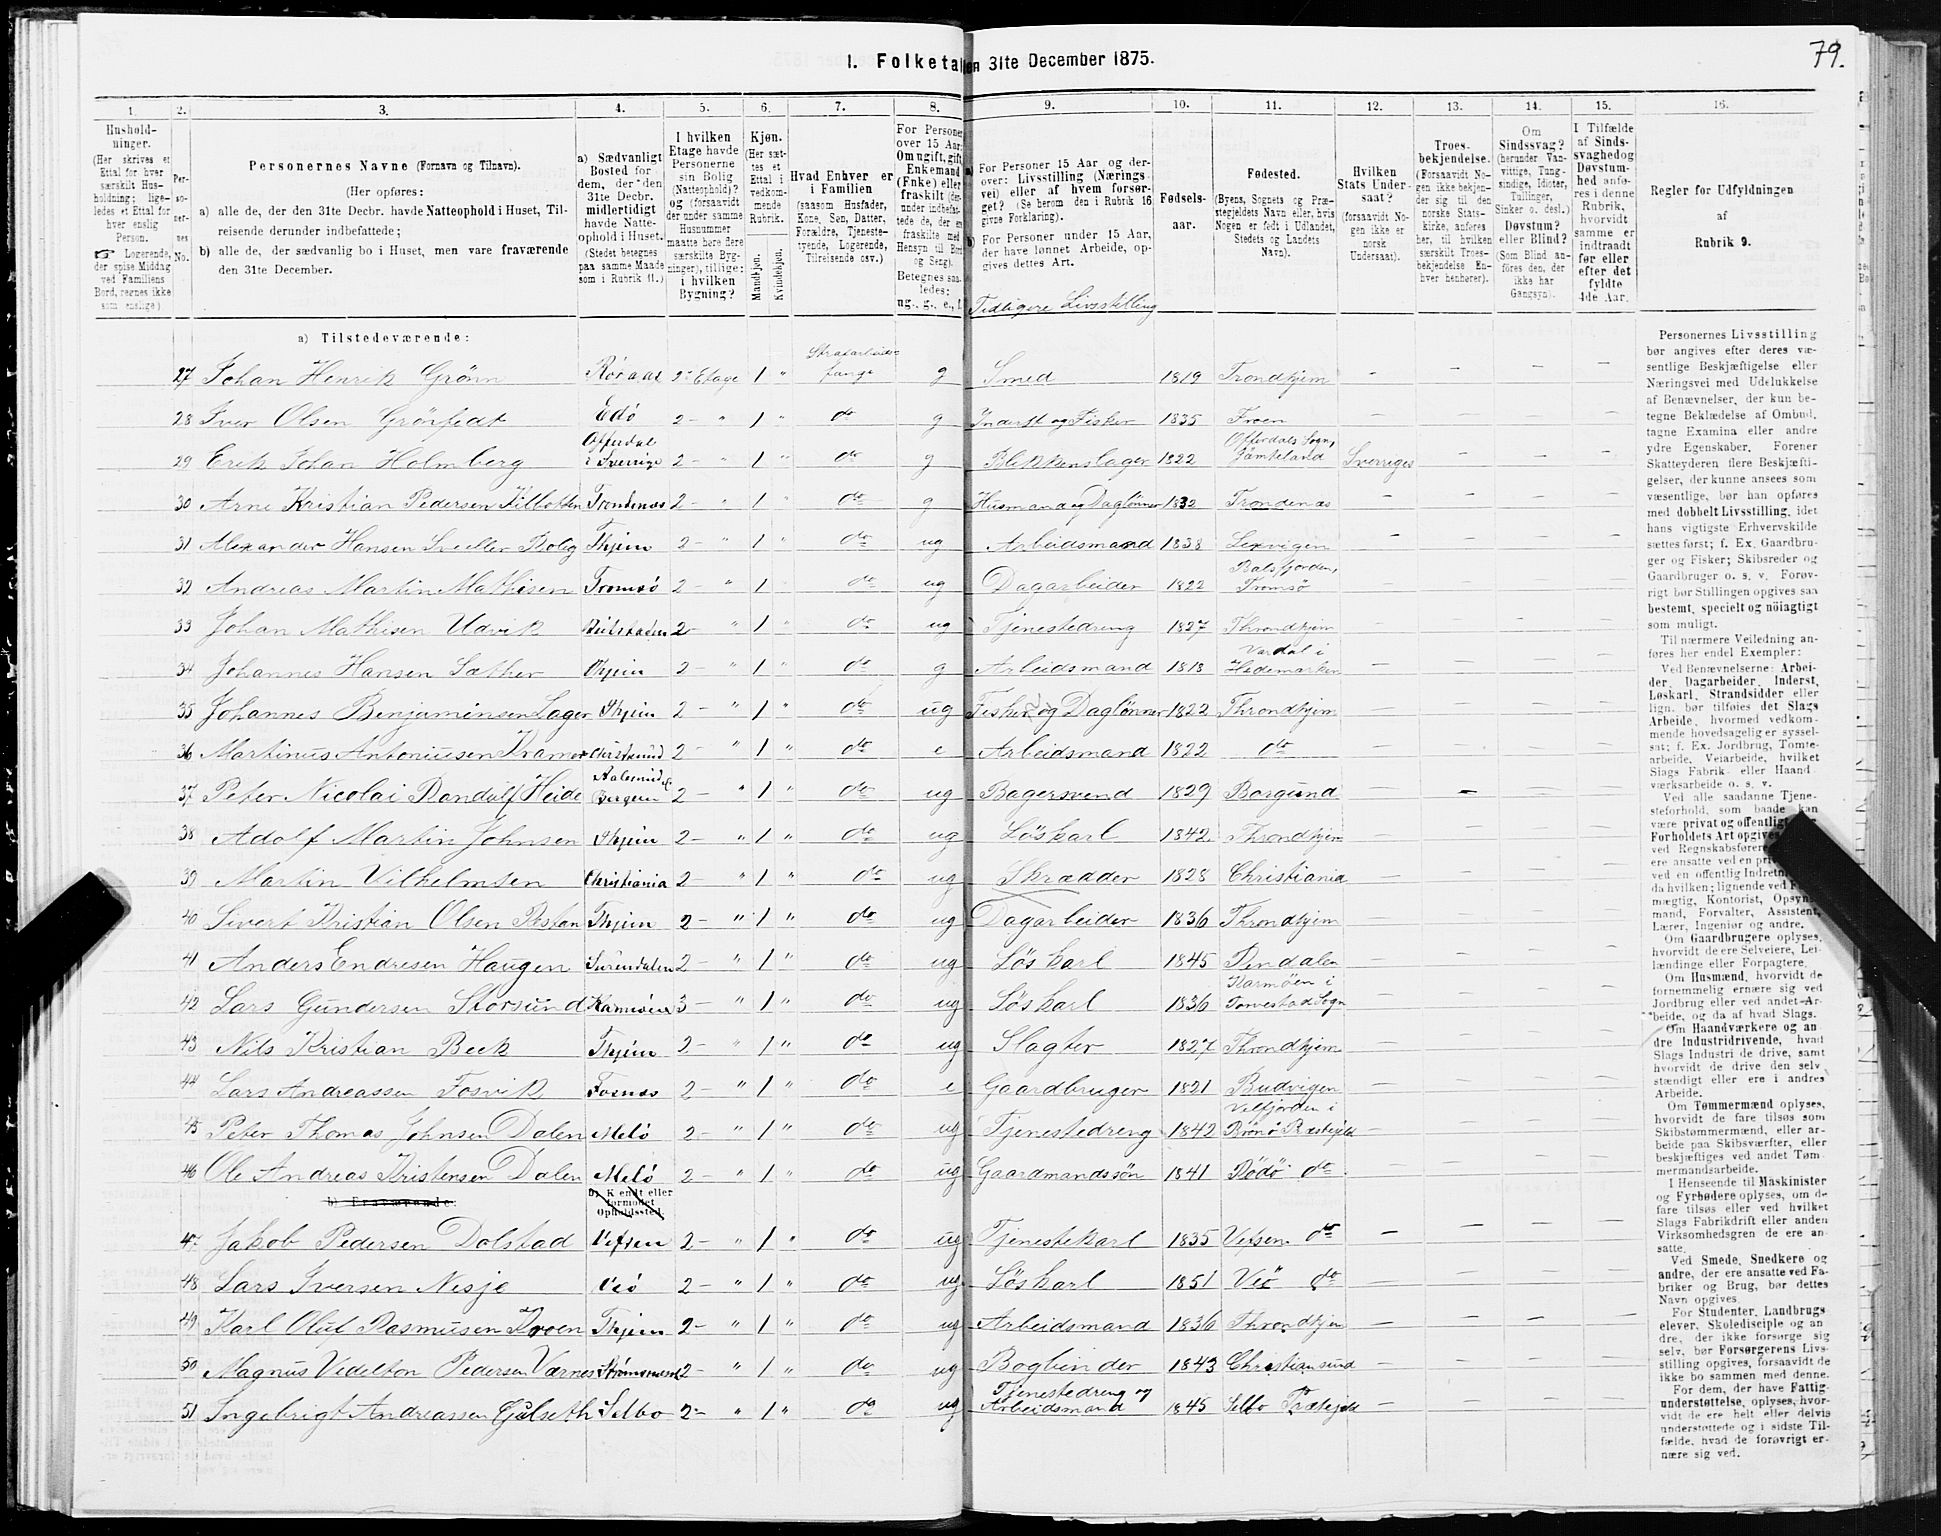 79.
1. Folketal den 31te December 1875.
1. 2. 3. 4. 5. 6. 7. 8. 9. 10. 11. 12. 13. 14. 15. 16.
Hushold-
ninger.
(Her skrives et
Ettal for hver
særskilt Hus-
holdning; lige-
ledes et Ettal for
hver enslig
Person.
Logerende,
der spise Middag
ved Familiens
Bord, regnes ikke
som enslige)
Per-
so-
ner-
nes
No.
Personernes Navne (Fornavn og Tilnavn).
(Her opføres:
a) alle de, der den 31te Decbr. havde Natteophold i Huset, Til-
reisende derunder indbefattede;
b) alle de, der sædvanlig bo i Huset, men vare fraværende
den 31te December.
a) Sædvanligt
Bosted for
dem, der den
31te Decbr.
midlertidigt
havde Natte-
ophold i Huset.
(Stedet betegnes
paa samme Maade
som i Rubrik 11.)
I hvilken
Etage havde
Personerne
sin Bolig
(Natteophold)?
og (forsaavidt
der under samme
Husnummer
maatte høre flere
særskilte Byg-
ninger), tillige:
i hvilken
Bygning?
Kjøn.
(Her sæt-
tes et
Ettal i
vedkom-
mende
Rubrik.
Mandkjøn.
Kvindekjøn.
Hvad Enhver er
i Familien
(saasom Husfader,
Kone, Søn, Datter,
Forældre, Tjeneste-
tyende, Logerende,
Tilreisende osv.)
For Personer
over 15 Aar:
Om ugift, gift,
Enkemand
(Enke) eller
fraskilt
Betegnes saa-
ledes:
ug., g., e., f.
a) For Personer 15 Aar og der-
over: Livsstilling (Nærings-
vei) eller af hvem forsør-
get? (Se herom den i Rubrik 16
givne Forklaring).
b) For Personer under 15 Aar,
der have lønnet Arbeide, op-
gives dettes Art.
Tidligere Livsstilling
Fødsels-
aar.
Fødested.
(Byens, Sognets og Præ-
stegjeldets Navn eller, hvis
Nogen er født i Udlandet,
Stedets og Landets
Navn).
Hvilken
Stats Under-
saat?
(forsaavidt No-
gen ikke er
norsk
Undersaat).
Troes-
bekjendelse.
(Forsaavidt No-
gen ikke bekjen-
der sig til den
norske Stats-
kirke, anføres
her, til hvilken
særskilt Troes-
bekjendelse En-
hver henhører).
Om
Sindssvag?
(herunder Van-
vittige, Tung-
sindige, Idioter,
Tullinger,
Sinker o. desl.)
Døvstum?
eller Blind?
(Som Blind an-
føres den, der
ikke har
Gangsyn).
I Tilfælde
af Sinds-
svaghed og
Døvstum-
hed anfø-
res i denne
Rubrik,
hvorvidt
samme er
indtraadt
før eller
efter det
fyldte
4de Aar.
Regler for Udfyldningen
af
Rubrik 9.
a) Tilstedeværende:
27 Johan Henrik Grønn Røraas 2den Etage 1 " Strafarbeidsfange g Smed 1819 Trondhjem - - - -
28 Iver Olsen Grönfedt Edö 2 - " 1 " do g Inderst og Fisker 1835 Froen - - - -
29 Erik Johan Holmberg Offerdal i Sverrige 2 - " 1 " do g Blikkenslager 1822 Offerdals Sogn, Jämteland Sverriges - - -
30 Arne Kristian Pedersen Killotten Trondenæs 2 - " 1 " do g Husmand og Daglønner 1832 Trondenæs - - - -
31 Alexander Hansen Sveeller Bolig Thjem 2 - " 1 " do ug Arbeidsmand 1838 Lexvigen - - - -
32 Andreas Martin Mathisen Tromsö 2 - " 1 " do ug Dagarbeider 1822 Balsfjorden, Tromsø - - - -
33 Johan Mathisen Udvik 2 - " 1 " do ug Tjenestedreng 1827 Throndhjem - - - -
34 Johannes Hansen Sæther Thjem 2 - " 1 " do g Arbeidsmand 1818 Vardal i Hedemarken - - - -
35 Johannes Benjaminsen Lager Thjem 2 - " 1 " do ug Fisker og Daglønner 1822 Throndhjem - - - -
36 Martinus Antoniussen Kramer Christsund 2 - " 1 " do e Arbeidsmand 1822 do - - - -
37 Peter Nicolai Randulf Heide Aalesund el. Bergen 2 - " 1 " do ug Bagersvend 1829 Borgund - - - -
38 Adolf Martin Johnsen Thjem 2 - " 1 " do ug Löskarl 1842 Throndhjem - - - -
39 Martin Vilhelmsen Christiania 2 - " 1 " do ug Skrædder 1828 Christiania - - - -
40 Sivert Kristian Olsen Restan Thjem 2 - " 1 " do ug Dagarbeider 1836 Throndhjem - - - -
41 Anders Endresen Haugen Surendalen 2 - " 1 " do ug Löskarl 1845 Rendalen - - - -
42 Lars Gundersen Storsund Karmöen 3 - " 1 " do ug Löskarl 1836 Karmöen i Torvestad Sogn - - - -
43 Nils Kristian Beck Thjem 2 - " 1 " do ug Slagter 1827 Throndhjem - - - -
44 Lars Andreassen Fosvik Fosnæs 2 - " 1 " do e Gaardbruger 1821 Budvigen - - - -
45 Peter Thomas Johnsen Dalen Melö 2 - " 1 " do ug Tjenestedreng 1842 Velfjorden i Brönö Præstegjeld - - - -
46 Ole Andreas Kristensen Dalen Melö 2 - " 1 " do ug Gaardmandssön 1841 Rödö do - - - -
b) Fraværende: b) Kjendt eller
formodet
Opholdssted.
47 Jakob Pedersen Dolstad Vefsen 2 - " 1 " do ug Tjenestekarl 1835 Vefsen do - - - -
48 Lars Iversen Nesje Veö 2 - " 1 " do ug Löskarl 1851 Veö do - - - -
49 Karl Oluf Rasmusen Kroen Thjem 2 - " 1 " do ug Arbeidsmand 1836 Throndhjem - - - -
50 Magnus Videlton Pedersen Værnes Strömsnæs 2 - " 1 " do ug Bogbinder 1843 Christiansund - - - -
51 Ingebrigt Andreassen Gjulseth Selbo 2 - " 1 " do ug Tjenestedreng og Arbeidsmand 1845 Selbo Præstegjeld - - - -
Personernes Livsstilling
bør angives efter deres væ-
sentlige Beskjæftigelse eller
Næringsvei med Udelukkelse
af Benævnelser, der kun be-
tegne Beklædelse af Ombud,
tagne Examina eller andre
ydre Egenskaber. Forener
Skatteyderen flere Beskjæfti-
gelser, der kunne ansees som
væsentlige, bør han opføres
med dobbelt Livsstilling, idet
hans vigtigste Erhvervskilde
sættes først; f. Ex. Gaardbru-
ger og Fisker; Skibsreder og
Gaardbruger o. s. v. Forøv-
rigt bør Stillingen opgives saa
bestemt, specielt og nöiagtigt
som muligt.
Til nærmere Veiledning an-
føres her endel Exempler:
Ved Benævnelserne: Arbei-
der, Dagarbeider, Inderst,
Løskarl, Strandsidder eller
lign. bør tilføies det Slags
Arbeide, hvormed vedkom-
mende hovedsagelig er syssel-
sat; f. Ex. Jordbrug, Tomte-
arbeide, Veiarbeide, hvilket
Slags Fabrik- eller Haand-
værksarbeide o. s. v.
Ved alle saadanne Tjene-
steforhold, som baade kan
være privat og offentligt
Forholdets Art opgives
ved Regnskabsførere
ere ansatte ved en
ved en offentlig Indretn
da hvilken; lignende ved
mægtig, Kontorist, Opsyns
mand, Forvalter, Assistent,
Lærer, Ingeniør og andre.
Om Gaardbrugere oplyses,
hvorvidt de ere Selveiere, Lei-
lændinge eller Forpagtere.
Om Husmænd, hvorvidt de
fornemmelig ernære sig ved
Jordbrug eller ved andet Ar-
beide, og da af hvad Slags.
Om Haandværkere og an-
dre Industridrivende, hvad
Slags Industri de drive, samt
hvorvidt de drive den selv-
stændigt eller ere i andres
Arbeide.
Om Tømmermænd oplyses,
hvorvidt de fare tilsøs som
Skibstømmermænd, eller ar-
beide paa Skibsværfter, eller
beskjæftiges ved andet Tøm-
mermandsarbeide.
I Henseende til Maskinister
og Fyrbødere oplyses, om de
fare tilsøs eller ved hvilket
Slags Fabrikdrift eller anden
Virksomhedsgren de ere an-
satte.
Ved Smede, Snedkere og
andre, der ere ansatte ved Fa-
briker og Brug, bør dettes
Navn opgives.
For Studenter, Landbrugs-
elever, Skoledisciple og an-
dre, der ikke forsørge sig
selv, bør Forsørgerens Livs-
stilling opgives, forsaavidt de
ikke bo sammen med denne.
For dem, der have Fattig-
understøttelse, oplyses, hvor-
vidt de ere helt eller delvis
understøttede og i sidste Til-
fælde, hvad de forøvrigt er-
nære sig ved.